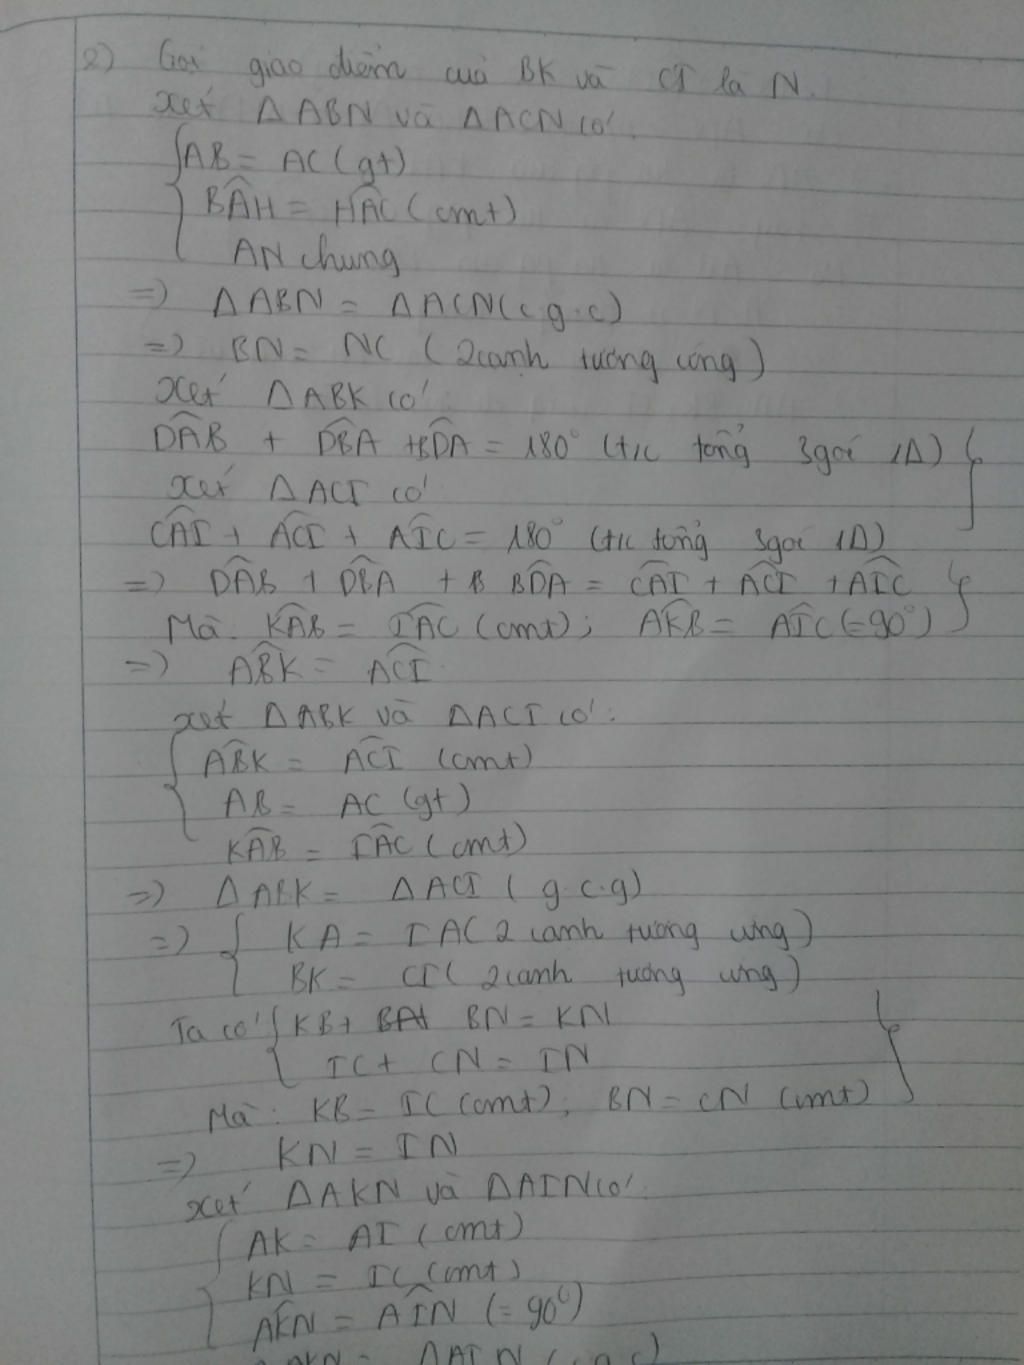 2) Gọi giao điểm của BK và CI là N.
xét ΔABN và ΔACN có:
AB = AC (gt)
BÂH = HÂC (cmt)
AN chung
=> ΔABN = ΔACN (c.g.c)
=> BN = NC (2 cạnh tương ứng)
xét ΔABK có:
DÂB + DB̂A + BD̂A = 180° (t/c tổng 3 goć 1Δ)
xét ΔACI có
CÂI + AĈI + AÎC = 180° (t/c tổng 3 goć 1Δ)
=> DÂB + DB̂A + B BD̂A = CÂI + AĈI + AÎC
Mà: KÂB = IÂC (cmt); AK̂B = AÎC (=90°)
=> AB̂K = AĈI.
xét ΔABK và ΔACI có:
AB̂K = AĈI (cmt)
AB = AC (gt)
KÂB = IÂC (cmt)
=> ΔABK = ΔACI (g.c.g)
=> KA = IA (2 cạnh tương ứng)
BK = CI (2 cạnh tương ứng)
Ta có KB + BN = KN
IC + CN = IN
Mà: KB = IC (cmt); BN = CN (cmt)
=> KN = IN
xét ΔAKN và ΔAIN có:
AK = AI (cmt)
KN = IC (cmt)
AK̂N = AÎN (=90°)
ΔAIN